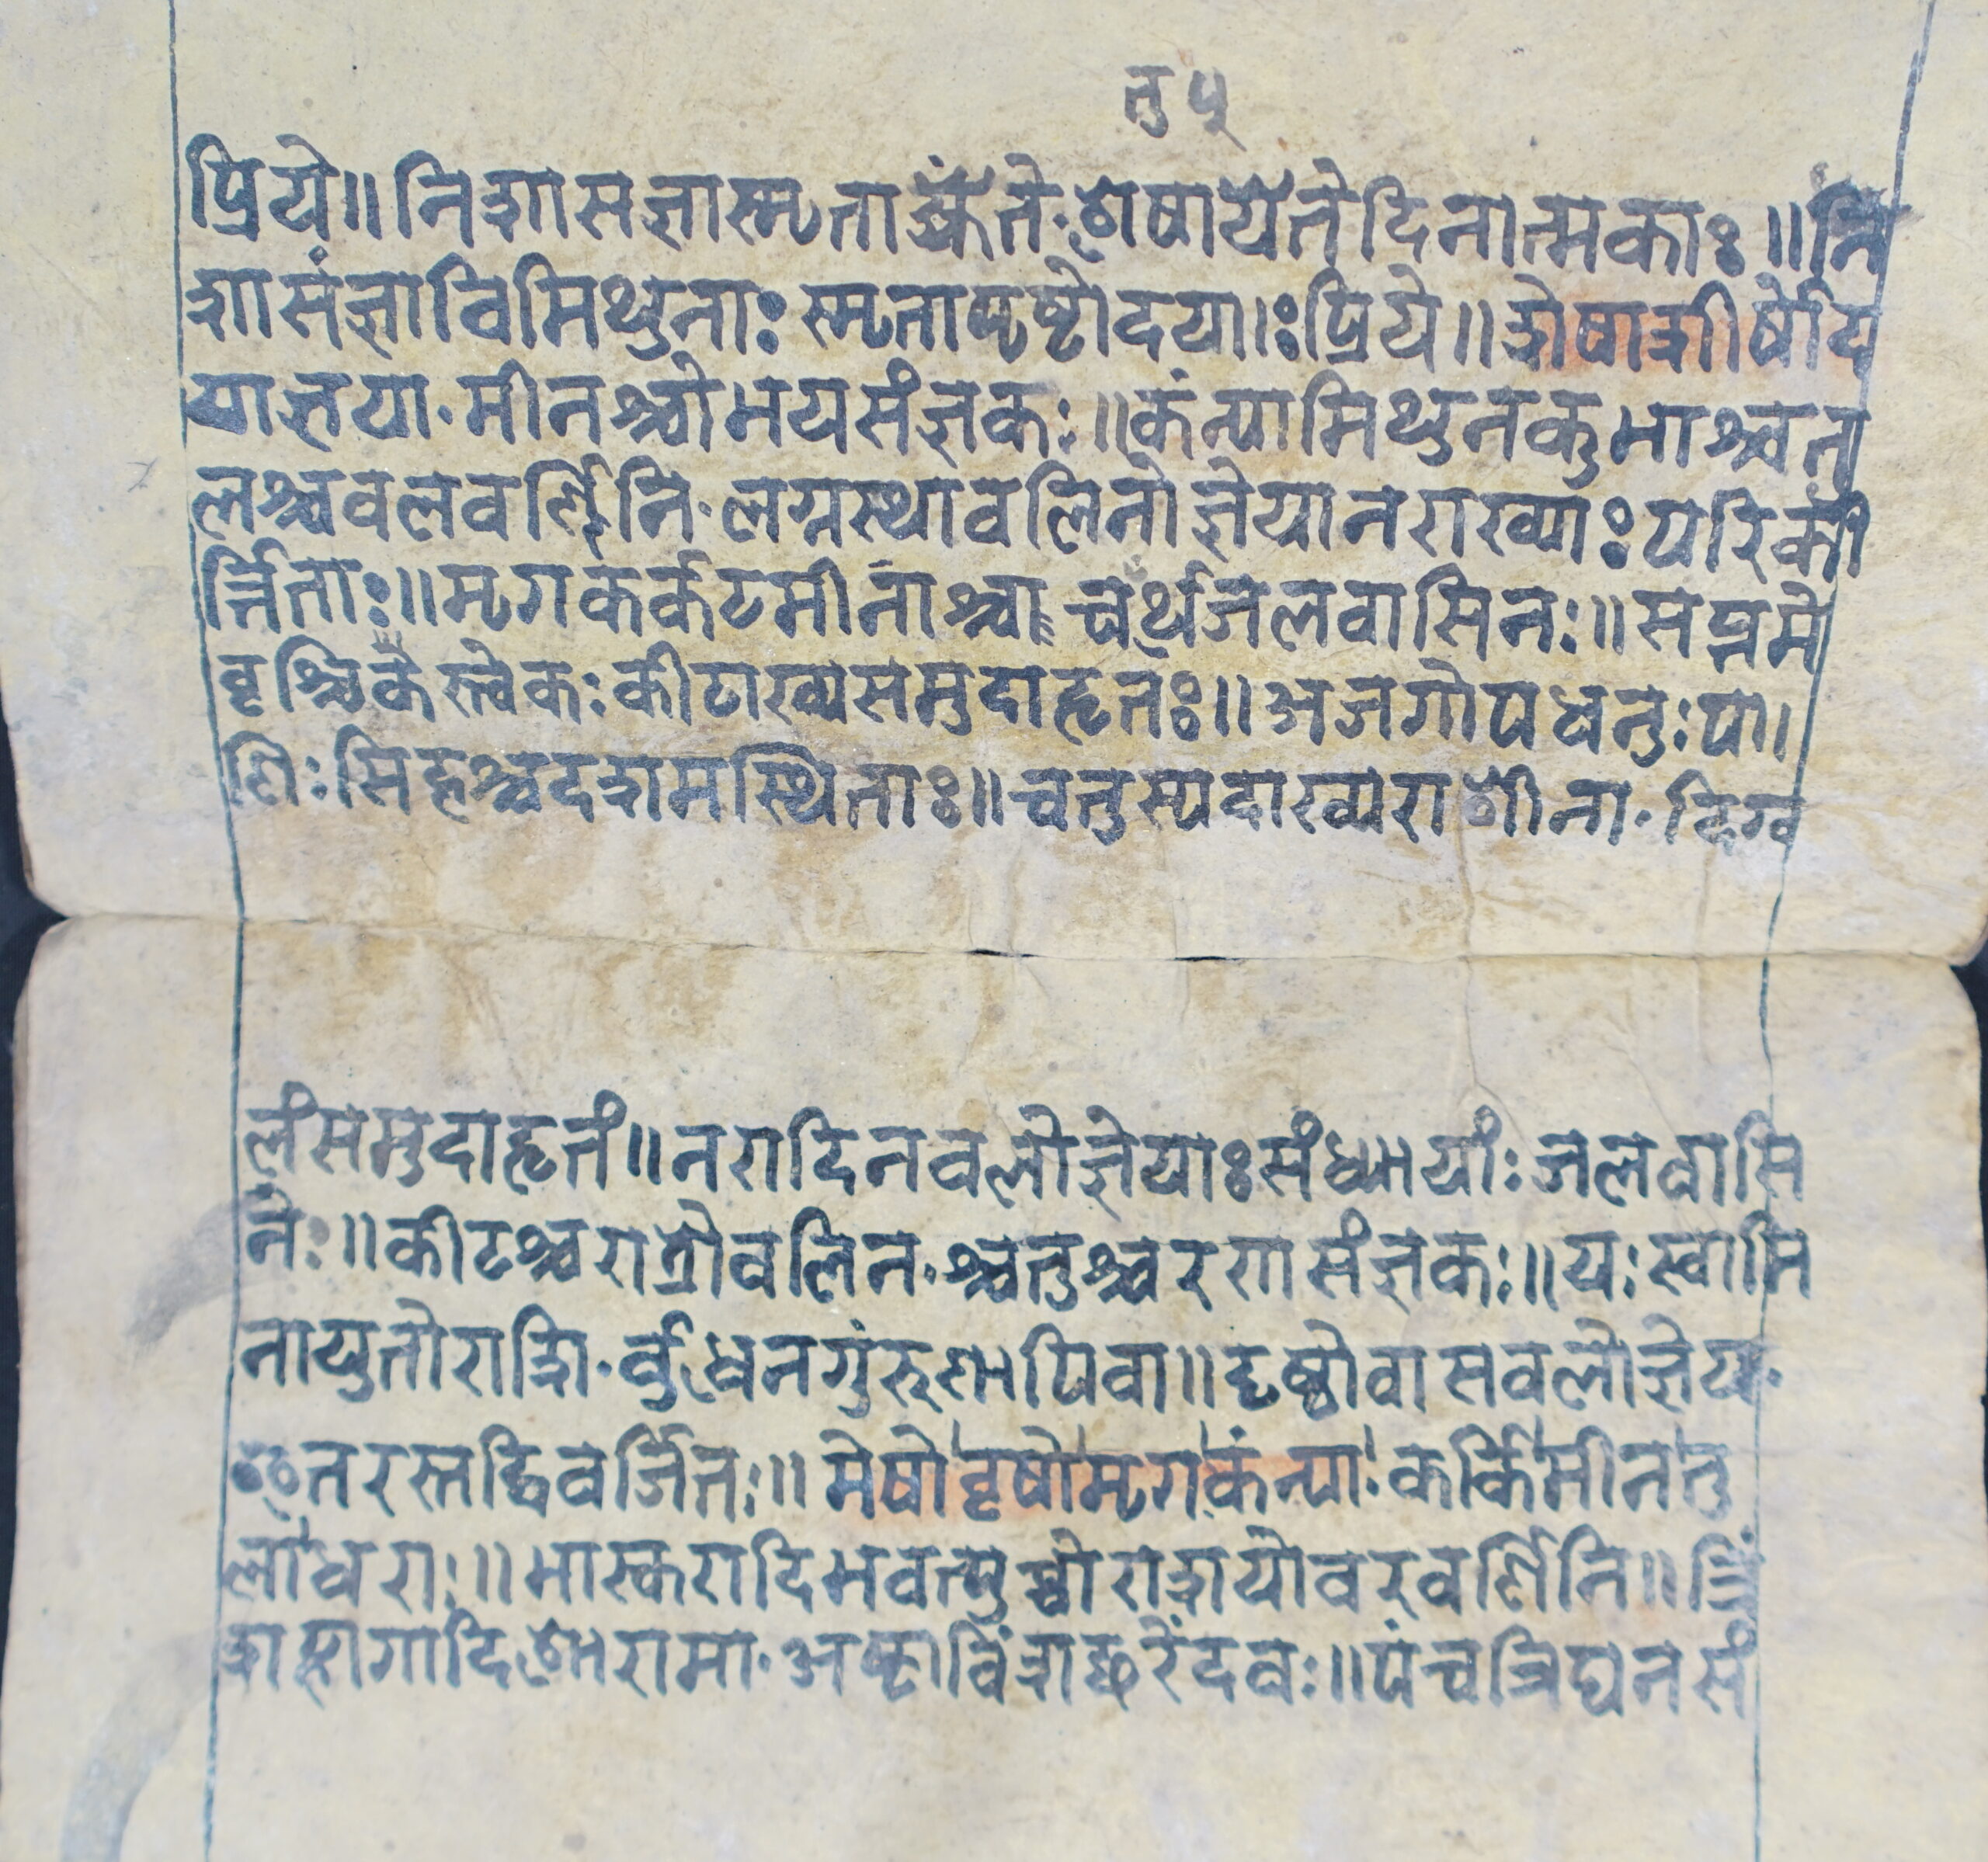 तु ५
प्रिये॥निशासज्ञास्मृताश्चैते·शेषायैतेदिनात्मकाः॥नि
शासंज्ञाविमिथुनाः स्मृतापृष्टोदया।ःप्रिये॥शेषाशीर्षोद
याज्ञया·मीनश्चोभयसंज्ञकः॥कंन्यामिथुनकुभाश्चतु
लश्चवलवर्णिनि·लग्नस्थावलिनोज्ञेयानराख्याःपरिकी
र्त्तिताः॥मृगकर्कटमीनाश्चा चर्थेजलवासिनः॥सप्तमे
वृश्चिकैस्त्वेकःकीटाख्यसमुदाहृतः॥अजगोपधनुःपा।
णिःसिहश्चदशमस्थिताः॥चतुस्पदाख्यराशीना·दिग्व
लंसमुदाहृतं॥नरादिनवलोज्ञेयाःसंध्यायांःजलवासि
नेः॥कीटश्चरात्रौवलिन·श्चतुश्चरणसंज्ञकः॥यःस्वामि
नायुतोराशि·र्वुधेनगुंरुणापिवा॥दृष्टोवासवलोज्ञेय·
ऋतरस्तद्विवर्जितः॥मेषोवृषोमृगकंन्या·कर्किमीनतु
लाधराः॥भास्करादिभवत्युच्चोराशयोवरवर्णिनि॥त्रिं
शाह्नागादिशोरामा·अष्टाविंशाछरेंदवः॥पंचत्रिघनसं